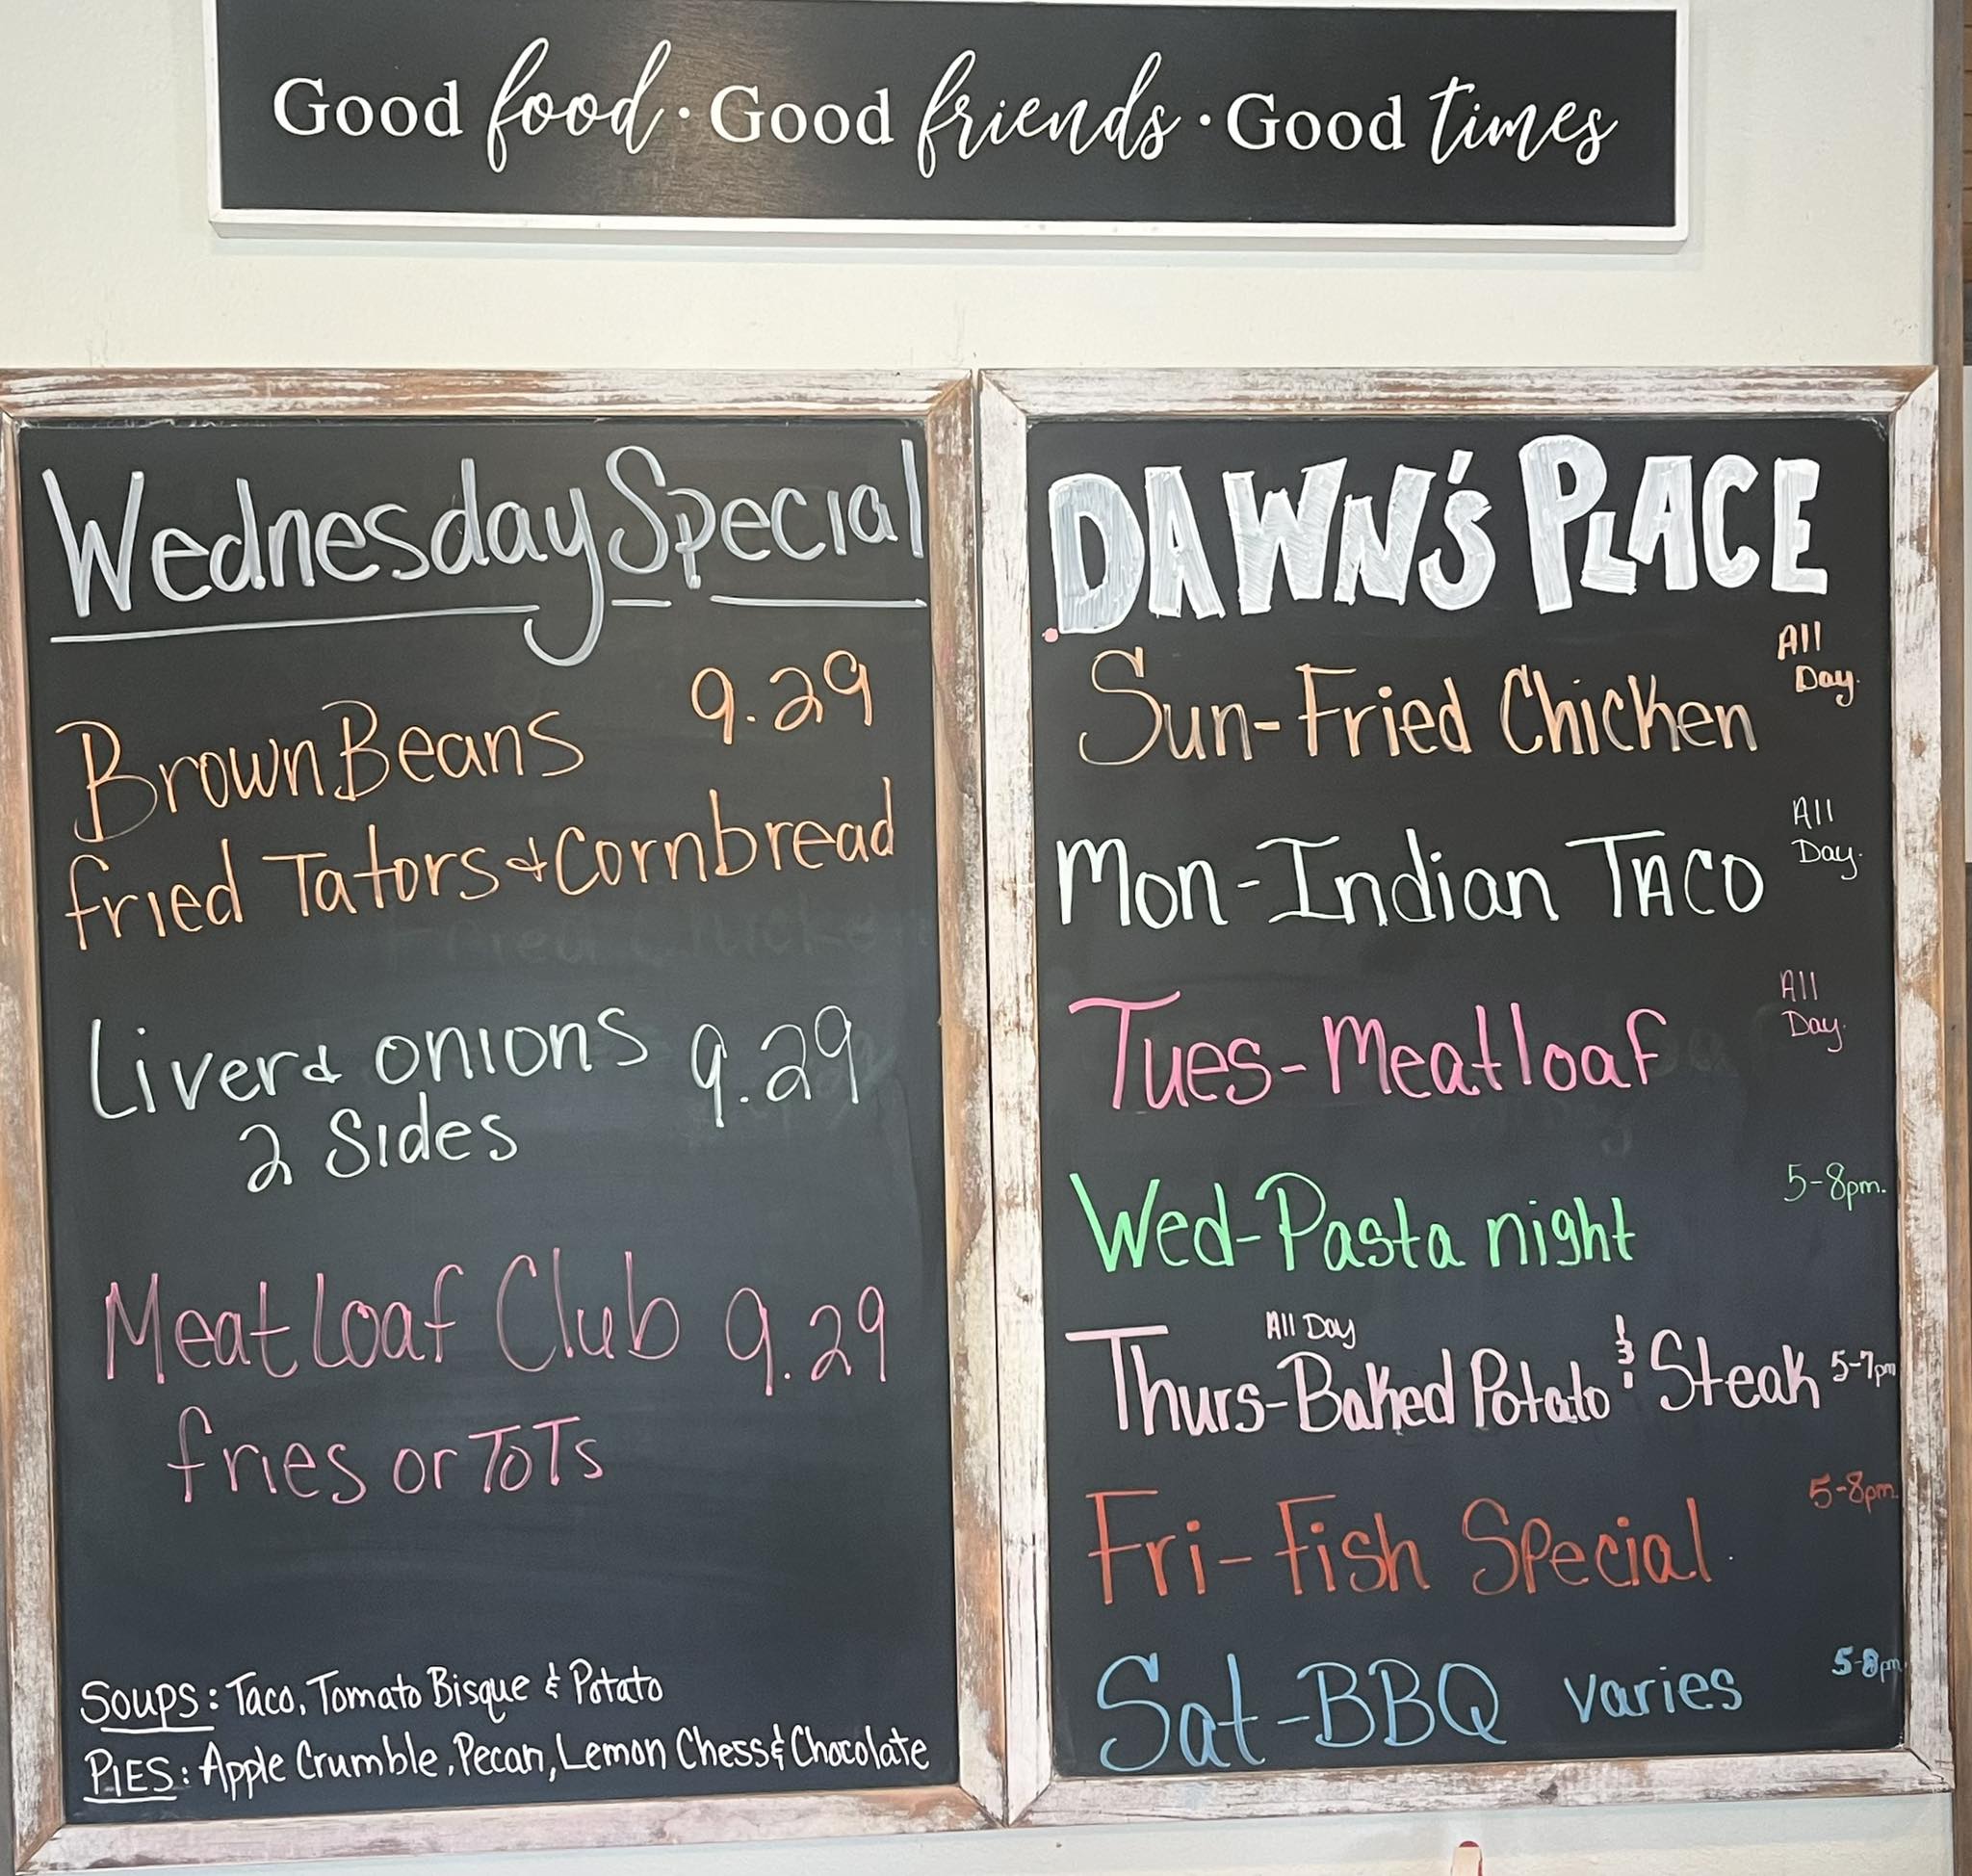 Good food · Good friends · Good times
Wednesday Special
Brown Beans 9.29
fried Tators & Cornbread
Liver & onions 9.29
2 Sides
Meatloaf Club 9.29
fries or ToTs
Soups: Taco, Tomato Bisque & Potato
PIES: Apple Crumble, Pecan, Lemon Chess & Chocolate
DAWN'S PLACE
All
Day.
Sun-Fried Chicken
All
Day.
Mon-Indian TACO
All
Day.
Tues-Meatloaf
5-8pm.
Wed-Pasta night
All Day
Thurs-Baked Potato & Steak 5-7pm
5-8pm.
Fri-Fish Special
Sat-BBQ varies 5-8pm.